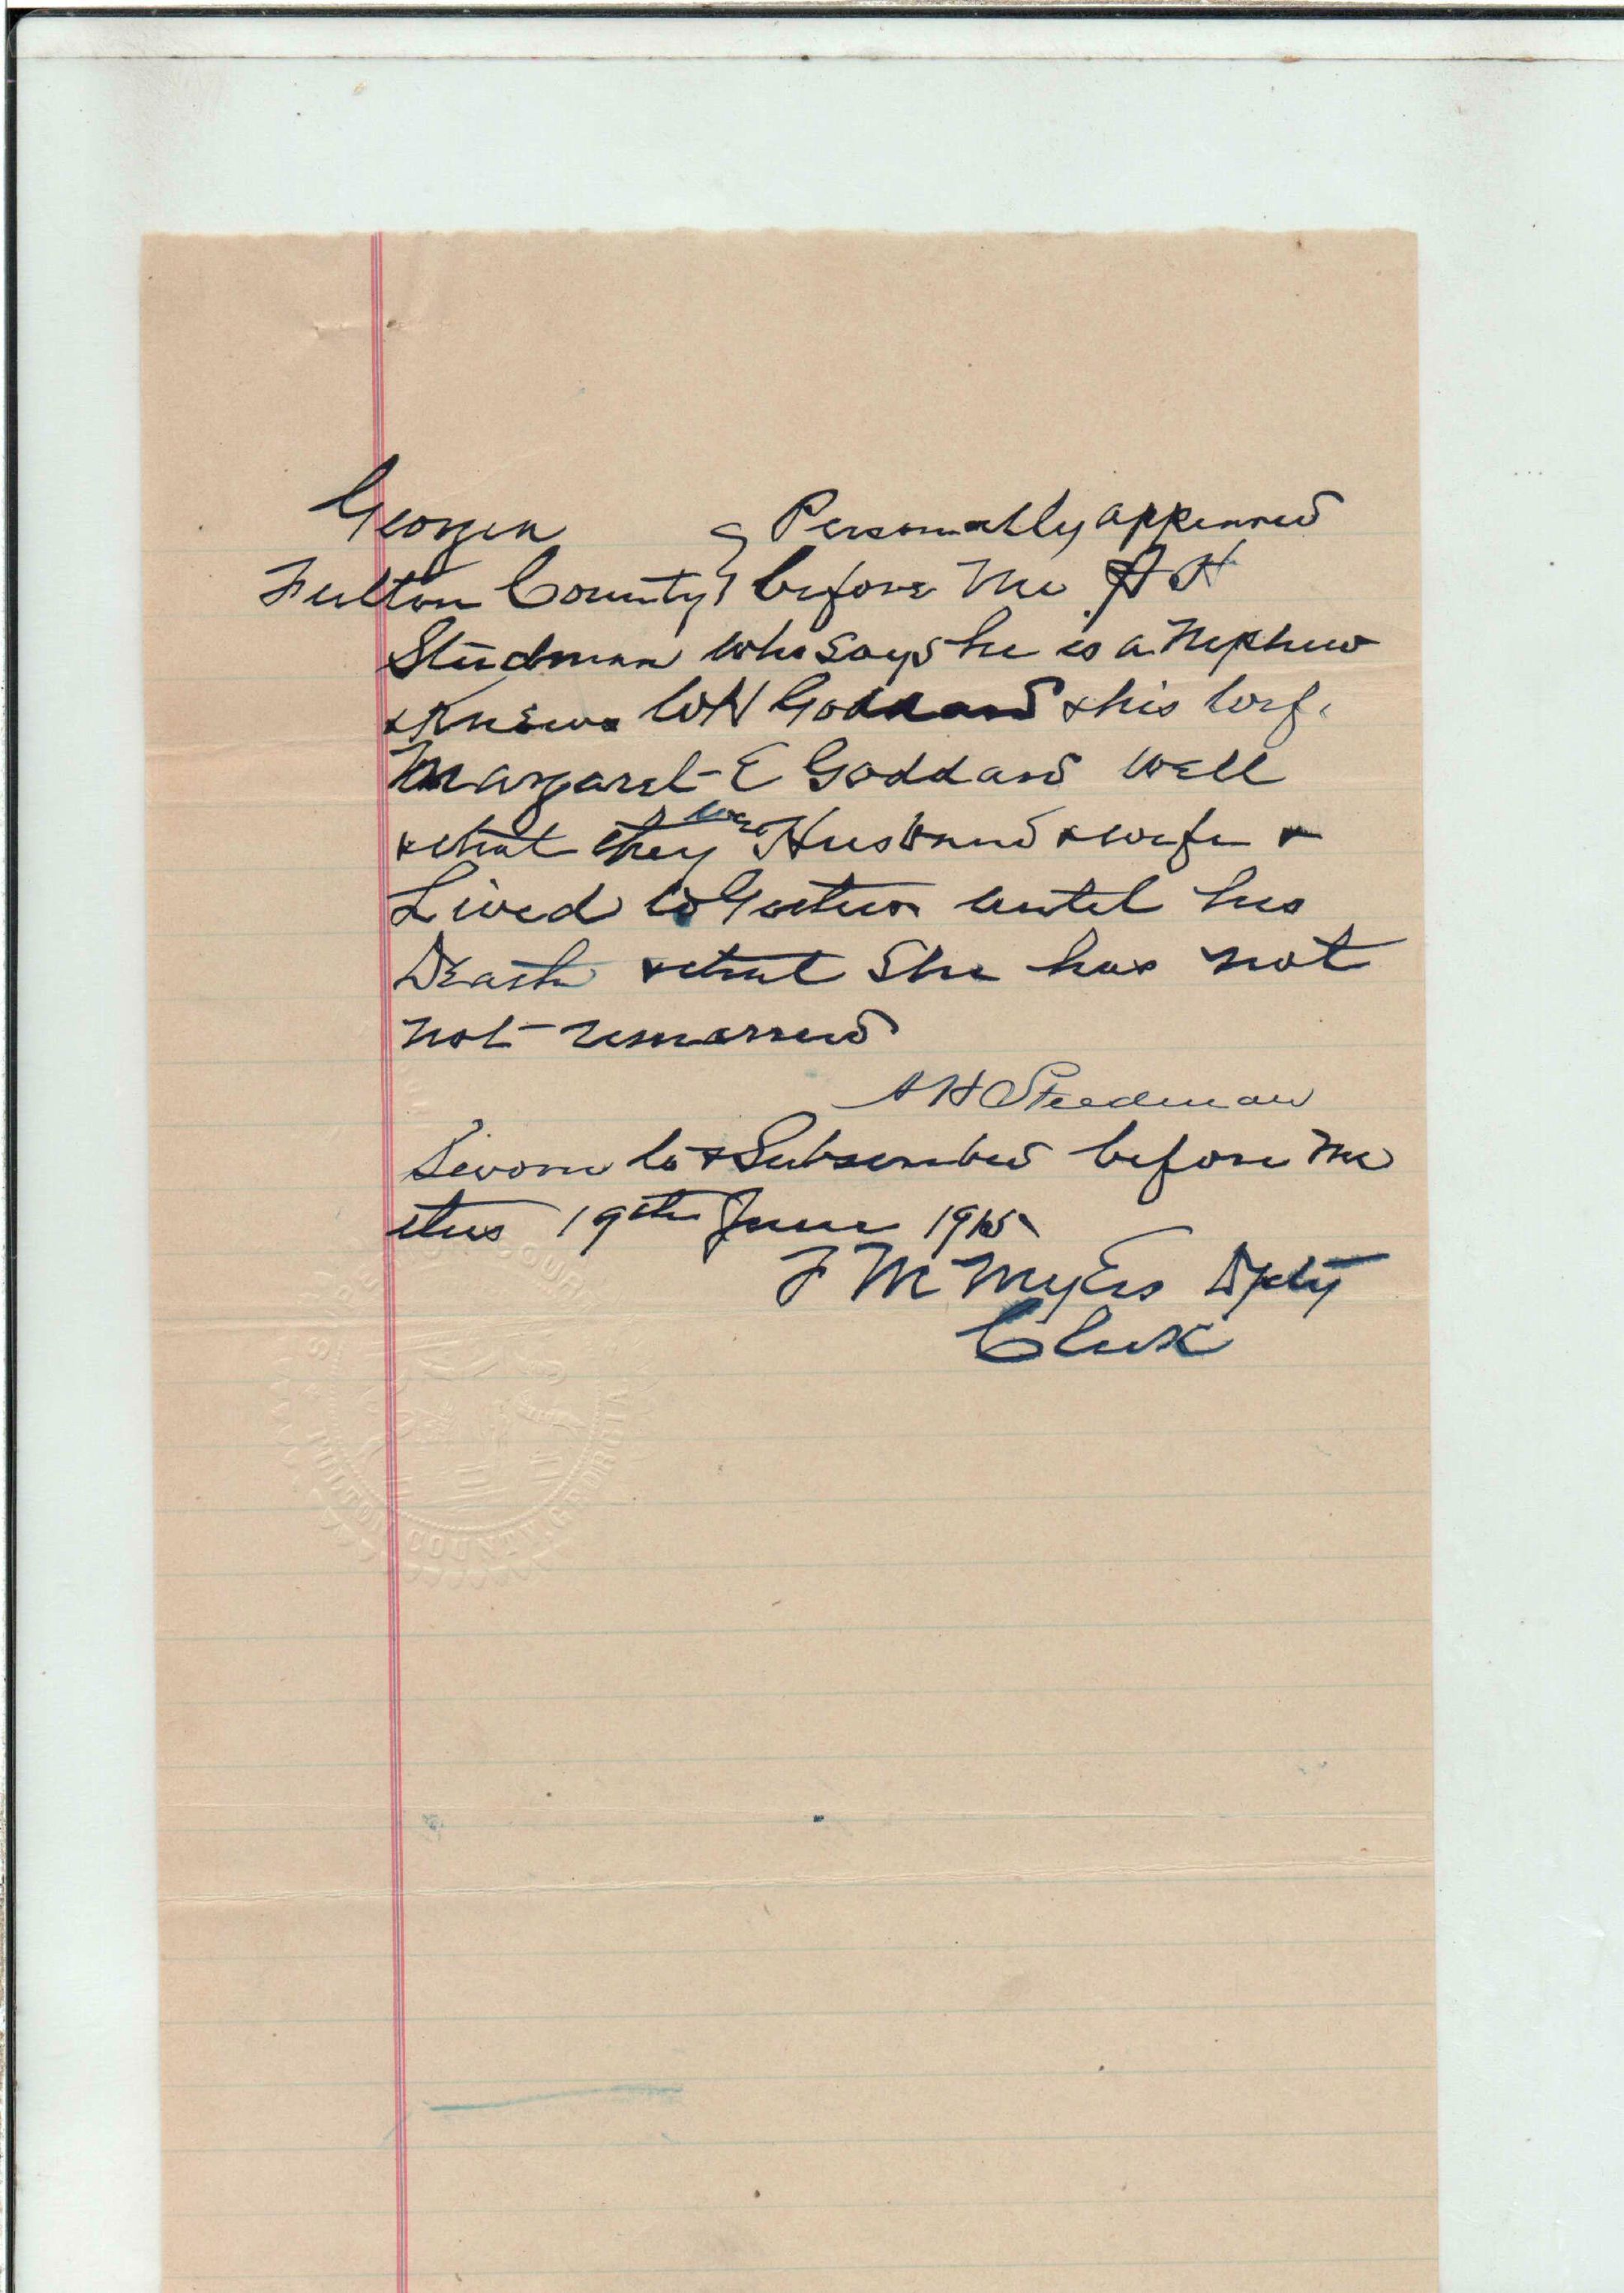 Georgia } Personally appeared
Fulton County } before me A H
Steedman who says he is a Nephew
& Knows W H Goddard & his wife
Margaret E Goddard well
& that they were Husband & wife &
Lived together until his
Death & that She has not
not remarried
A H Steedman
Sworn to & Subscribed before me
this 19th June 1915
F M Myers Dpty
Clerk
SUPERIOR COURT
FULTON COUNTY, GEORGIA